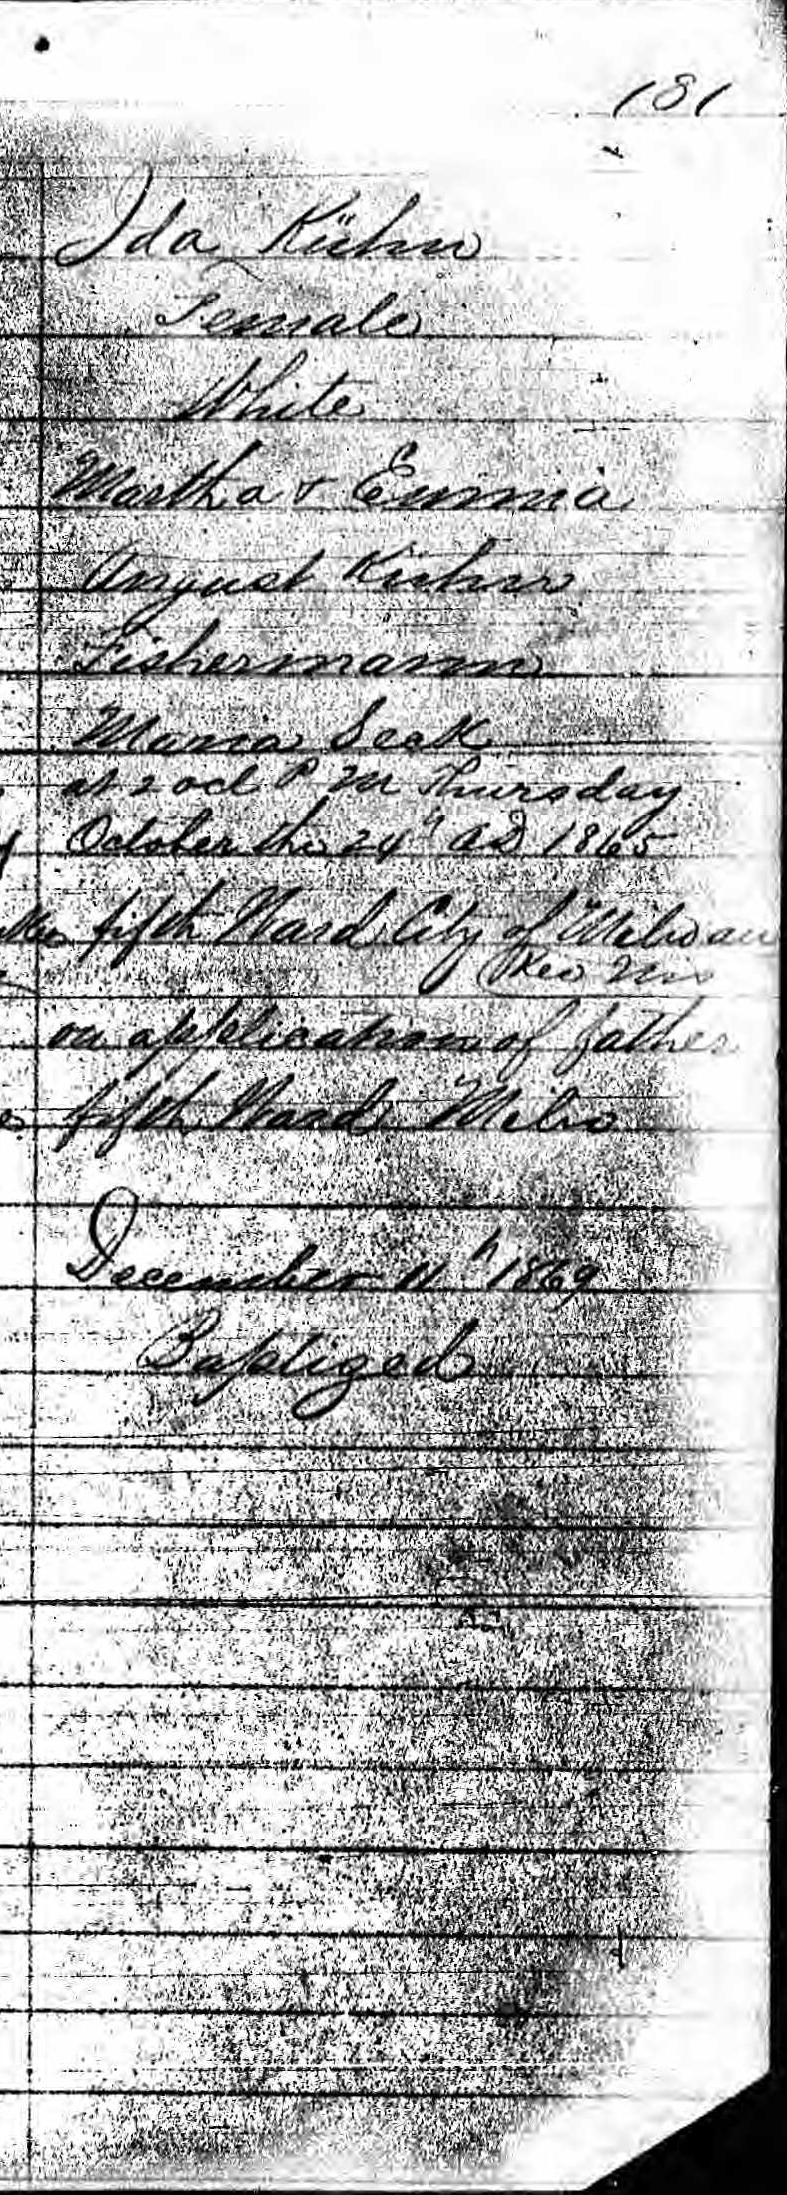 181
Ida Kühn
Female
White
Martha & Emma
August Kühn
Fishermann
Maria Seek
at 2 ocl P M Thursday
October the 24" AD 1865
fifth Ward City of Milwau
Kee Wis
on application of father
fifth Ward Milw
December 11h 1869
Baptized